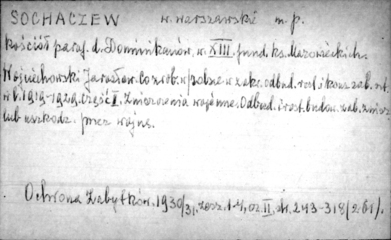 SOCHACZEW w. warszawskie m. p.
kościół paraf. d. Dominikanów, w. XIII. fund. ks. Mazowieckich.
Wojciechowski Jarosław. Co zrob. w Polsce w zakr. odbud. rest. i kons. zab. szt.
w l. 1919-1929. Część I. Zniszczenia wojenne. Odbud. i rest. budow. zab. zniszcz.
lub uszkodz. przez wojnę.
Ochrona Zabytków. 1930/31, zesz. 1-4, cz. II. str. 243-318/2.61/.